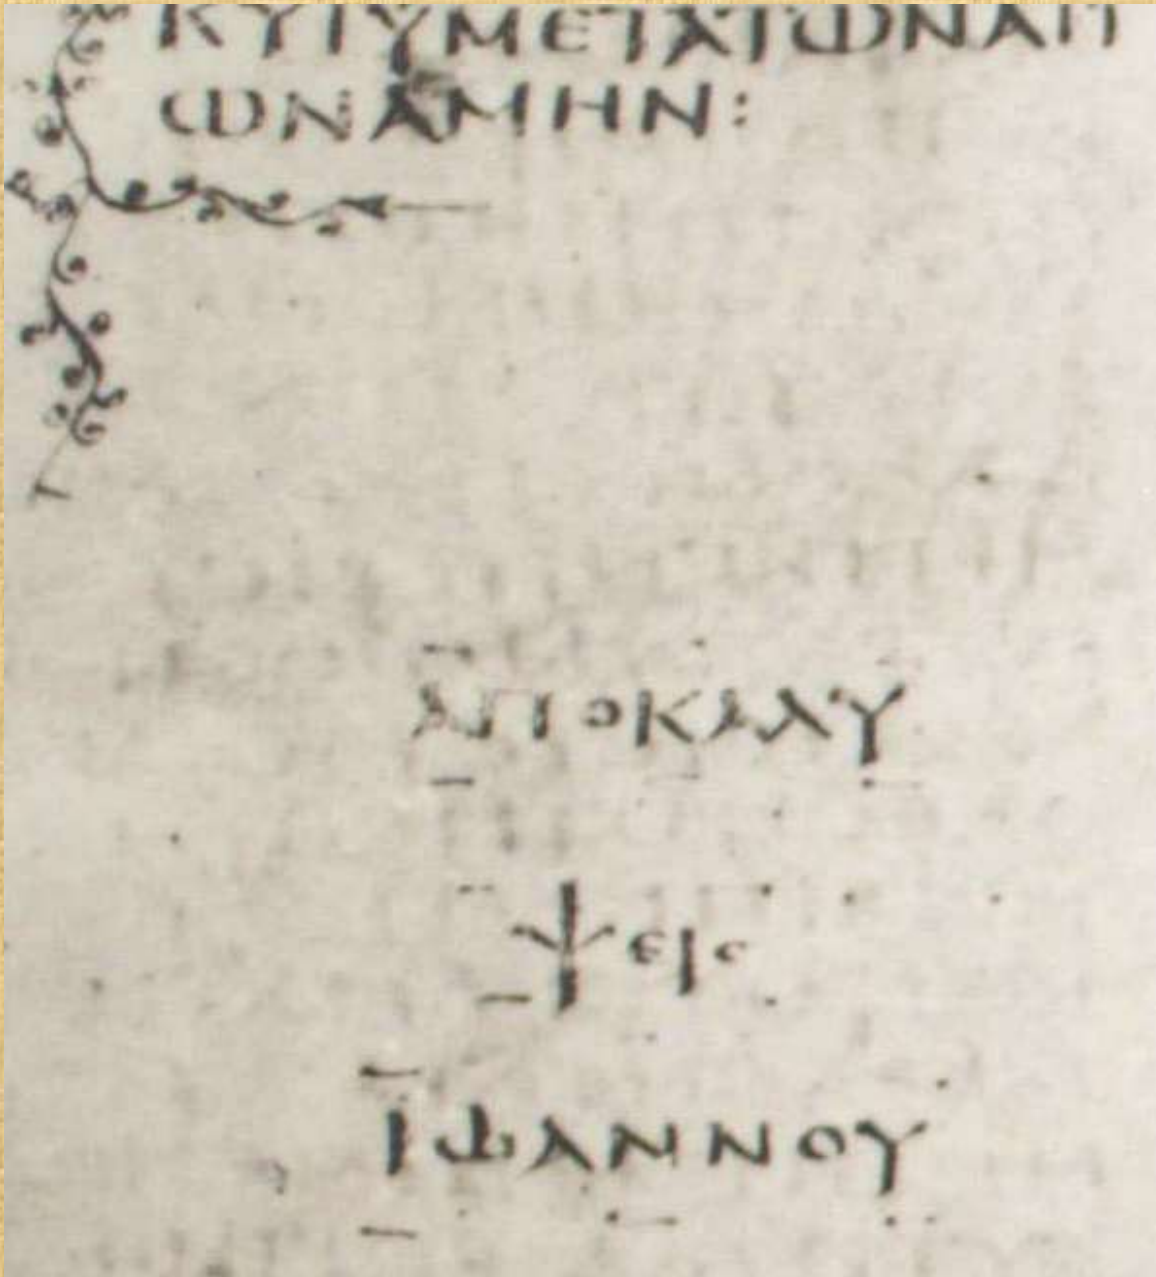 ΚΥΙΥΜΕΤΑΤΩΝΑΓΙ
ΩΝΑΜΗΝ:
ΑΠΟΚΑΛΥ
ΨΕΙϹ
ΙΩΑΝΝΟΥ